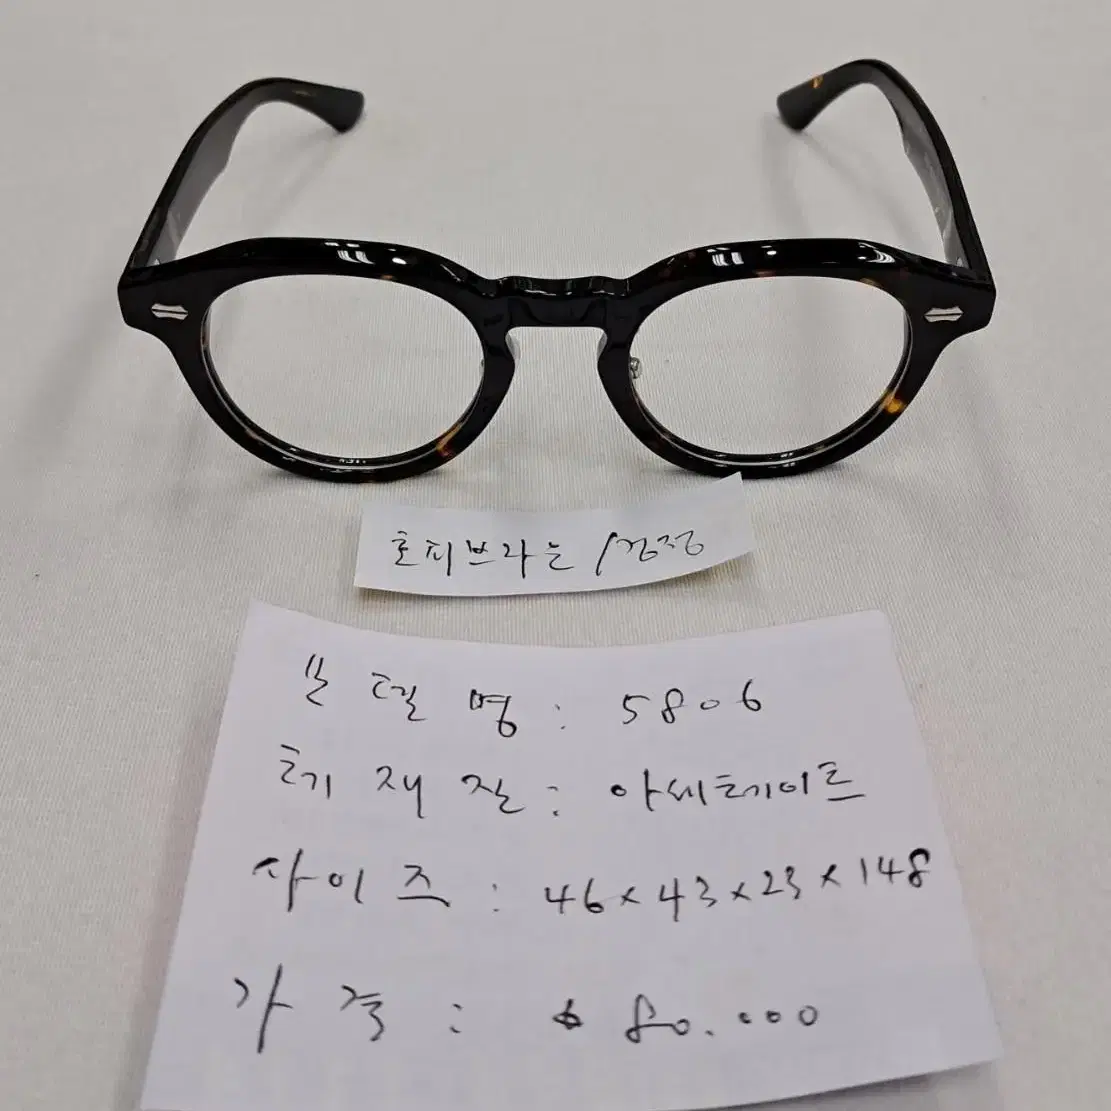 호피브라운 / 검정
모델명 : 5806
테재질 : 아세테이트
사이즈 : 46×43×23×148
가격 : 80.000